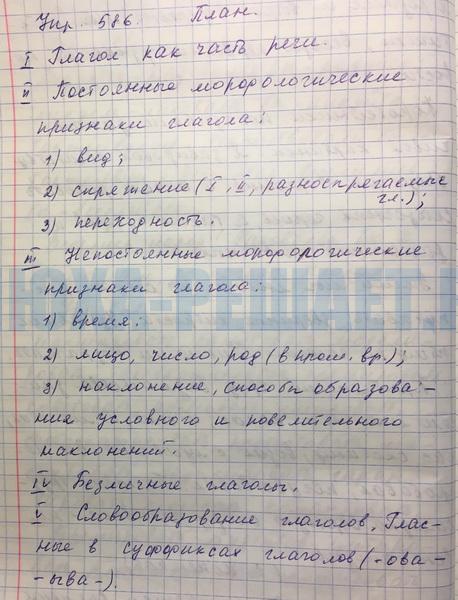 Упр. 586. План.
I Глагол как часть речи.
II Постоянные морфологические
признаки глагола:
1) вид;
2) спряжение (I, II, разноспрягаемые
гл.);
3) переходность.
III Непостоянные морфорологические
признаки глагола:
1) время:
2) лицо, число, род (в прош. вр.);
3) наклонение, способы образова-
ния условного и повелительного
наклонений.
IV Безличные глаголы.
V Словообразование глаголов, Глас-
ные в суффиксах глаголов (-ова-
-ыва-).